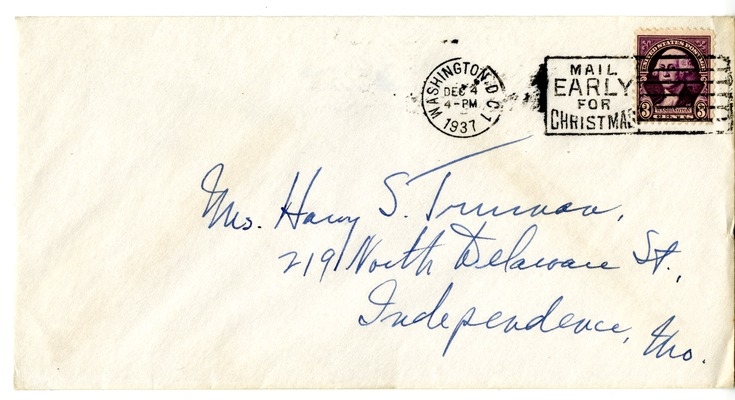 WASHINGTON, D.C. 1
DEC 4
4-PM
1937
MAIL
EARLY
FOR
CHRISTMAS
UNITED STATES POSTAGE
3 WASHINGTON 3
Mrs. Harry S. Truman,
219 North Delaware St.,
Independence, Mo.